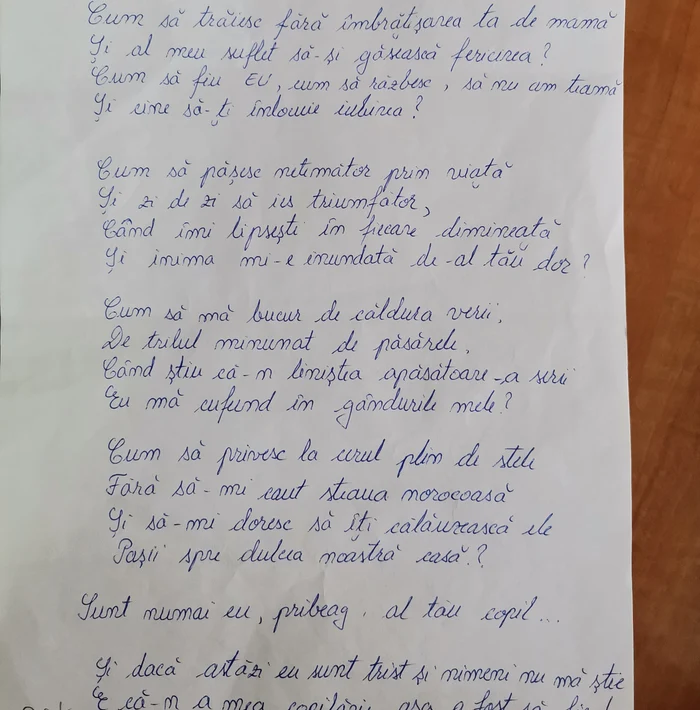 Cum să trăiesc fără îmbrățișarea ta de mamă
Și al meu suflet să-și găsească fericirea?
Cum să fiu EU, cum să răzbesc, să nu am teamă
Și cine să-ți înlocuie iubirea?
Cum să pășesc netemător prin viață
Și zi de zi să ies triumfător,
Când îmi lipsești în fiecare dimineață
Și inima mi-e inundată de-al tău dor?
Cum să mă bucur de căldura verii,
De trilul minunat de păsărele,
Când știu că-n liniștea apăsătoare-a serii
Eu mă cufund în gândurile mele?
Cum să privesc la cerul plin de stele
Fără să-mi caut steaua norocoasă
Și să-mi doresc să îți călăuzească ele
Pașii spre dulcea noastră casă?
Sunt numai eu, pribeag, al tău copil...
Și dacă astăzi eu sunt trist și nimeni nu mă știe
E că-n a mea copilărie așa a fost să fie!